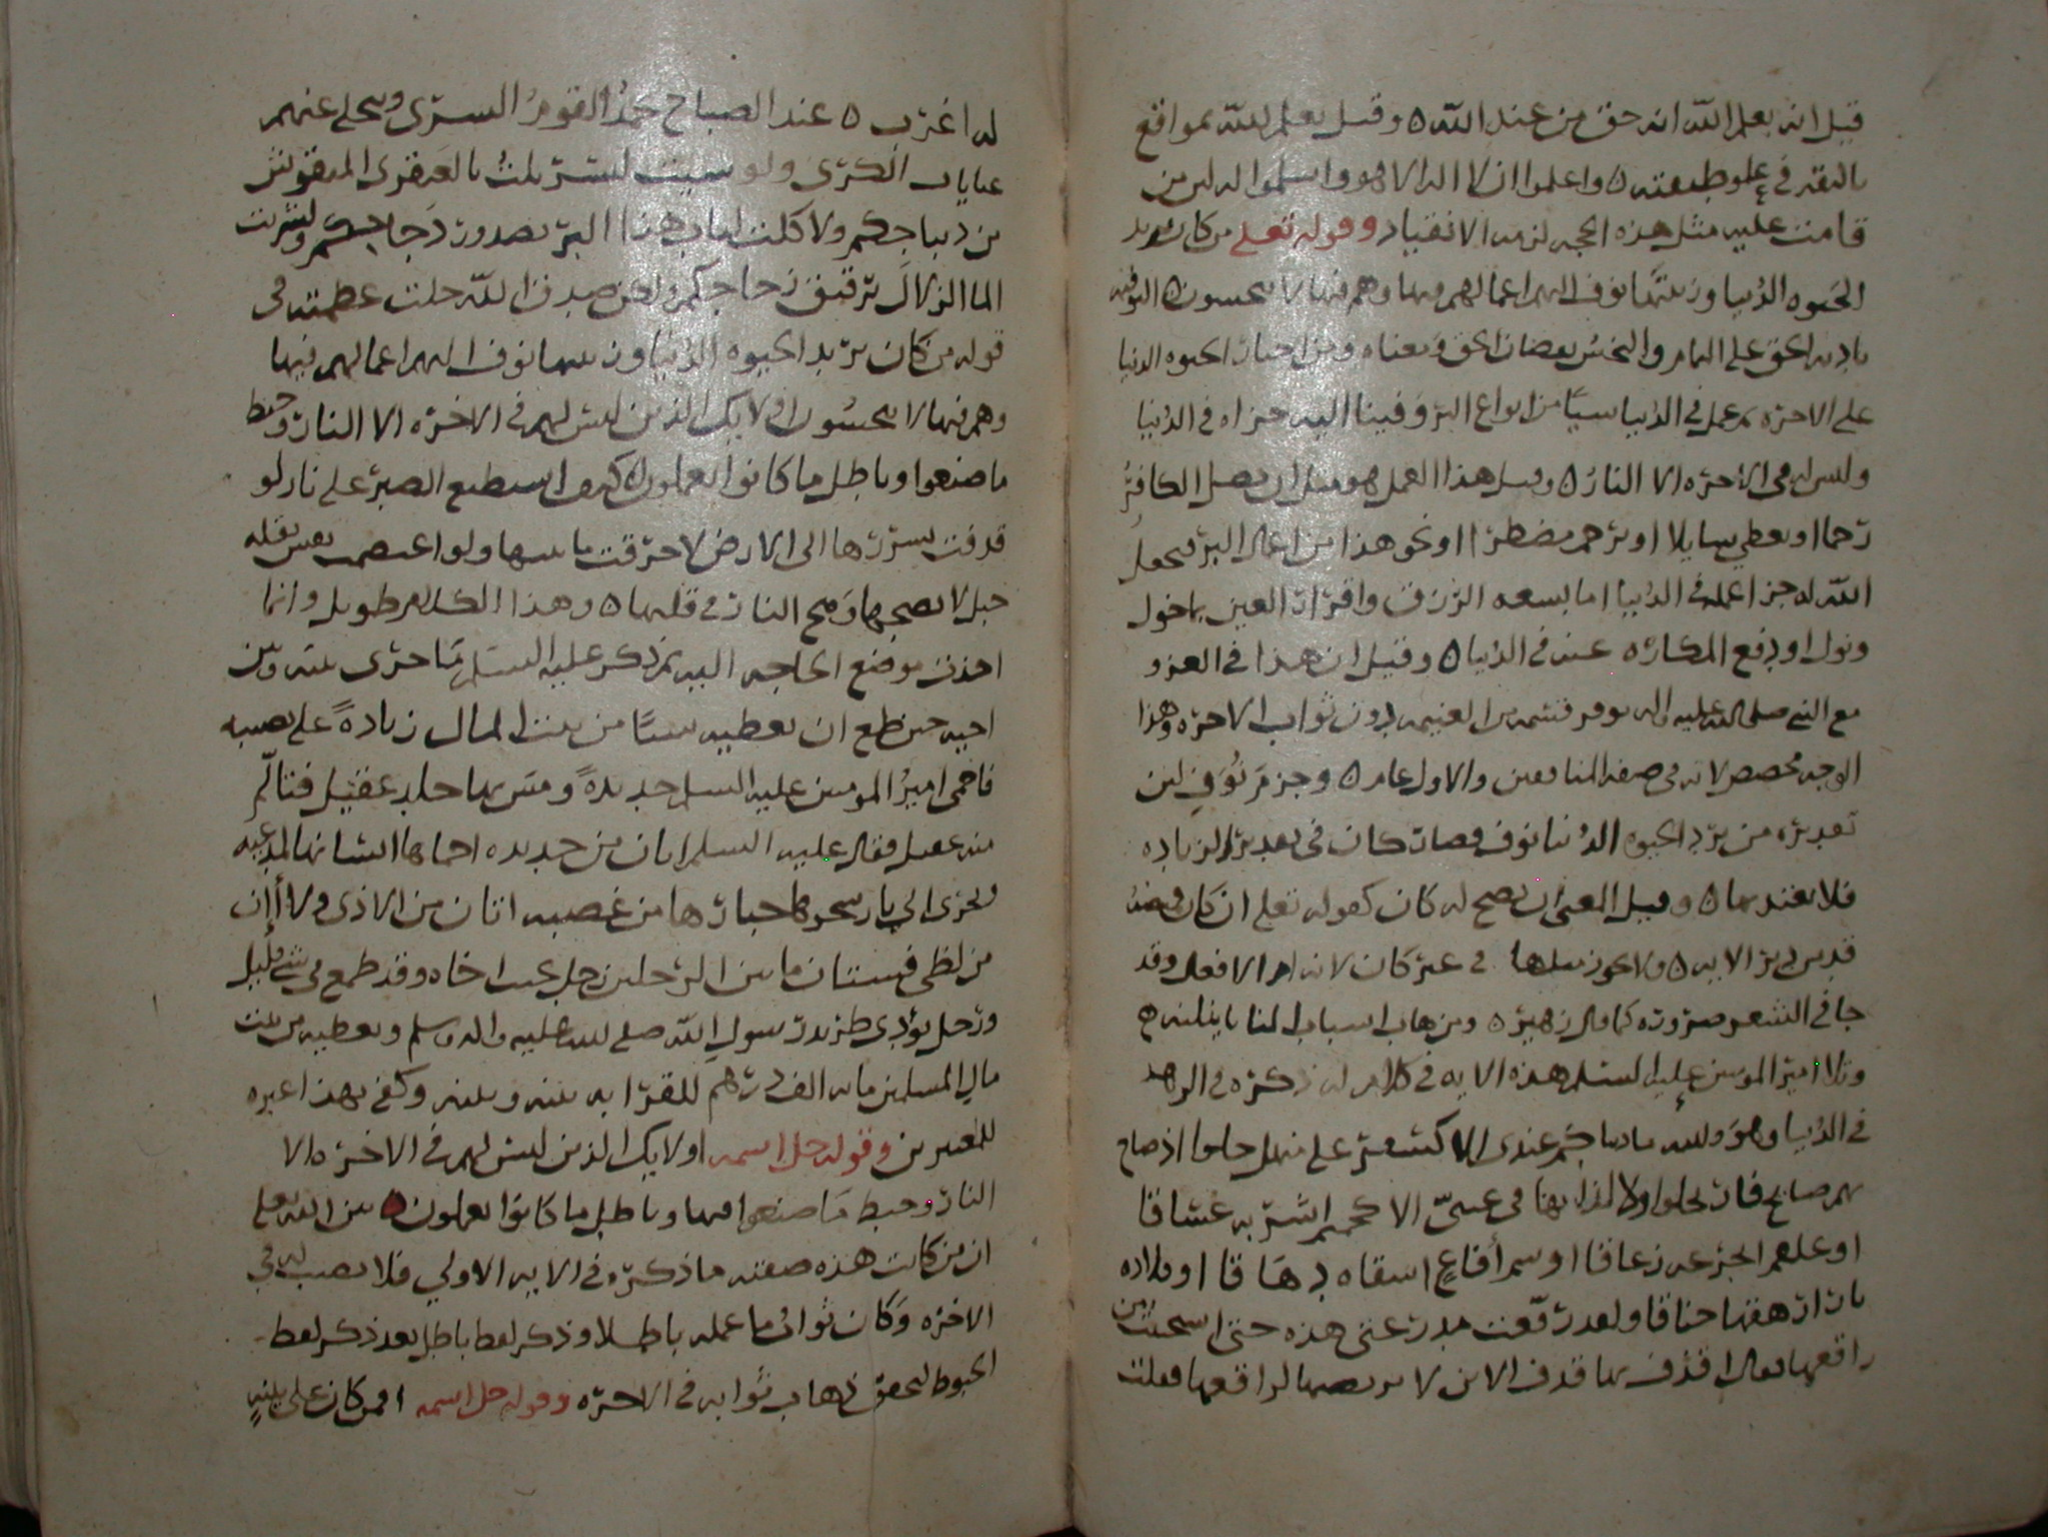 قيل انه بعلم الله انه حق من عند الله ٥ وقيل بعلم الله بمواقع
في علو طبقته ٥ واعلموا ان لا اله الا هو واسلموا له لان من
قامت عليه مثل هذه الحجه لزمه الانقياد وقوله تعلى من كان يريد
الحيوه الدنيا وزينتها نوف اليهم اعمالهم فيها وهم فيها لا يبخسون ٥ التوفيه
تاديه الحق على التمام والبخس نقصان الحق ومعناه من اختار الحيوه الدنيا
على الاخره بعمل في الدنيا سيا من انواع البر وفينا اليه جزاه في الدنيا
وليس له في الاخره الا النار ٥ وقيل هذا العمل هو مثل ان يصل الكافر
رحما او يعطي سايلا او يرحم مضطرا او نحو هذا من اعمال البر فيجعل
الله له جزا عمله في الدنيا اما بسعه الرزق واقرار العين بما خول
ونول او بدفع المكاره عنه في الدنيا ٥ وقيل ان هذا في الغزو
مع النبي صلى الله عليه واله يوفر قسمه من الغنيمه دون ثواب الاخره وهذا
الوجه مخصص لانه في صفه المنافقين والاول عام ٥ وجزم نوف لان
تقديره من يرد الحيوه الدنيا نوف فصارت كان في تقدير الزياده
فلا يعتد بها ٥ وقيل المعنى ان يصح له كان كقوله تعلى ان كان قميصه
قد من دبر الايه ٥ ولا يجوز مثلها في غير كان لانها ام الافعال وقد
جا في الشعر ضروره كما قال زهير ٥ ومن هاب اسباب المنايا ينلنه ٥
وتلا امير المومنين عليه السلم هذه الايه في كلام له ذكره في الزهد
في الدنيا وهو والله ما دنياكم عندي الا كسفر على منهل حلوا اذ صاح
بهم صايح فارتحلوا ولا لذاذتها في عيني الا كحميم اشربه غساقا
او علقم اتجرعه زعاقا او سم أفاع اسقاه دهاقا او قلاده
من نار ارهقها خناقا ولقد رقعت مدرعتي هذه حتى استحييت من
راقعها وقال اقذف بها قذف الاتن لا يرتضيها لراقعها فقلت
له اغرب ٥ عند الصباح يحمد القوم السرى وتنجلي عنهم
غيابات الكرى ولو شيت لتسربلت بالعبقري المنقوش
من ديباجكم ولاكلت لباب هذا البر بصدور دجاجكم ولشربت
الما الزلال برقيق زجاجكم ولكن صدق الله جلت عظمته في
قوله من كان يريد الحيوه الدنيا وزينتها نوف اليهم اعمالهم فيها
وهم فيها لا يبخسون اولايك الذين ليس لهم في الاخره الا النار وحبط
ما صنعوا وباطل ما كانوا يعملون ٥ كيف استطيع الصبر على نار لو
قذفت بشررها الى الارض لاحرقت ما بينها ولو اعتصمت نفس بقله
جبل لانضجها وهج النار في قلتها ٥ وهذا الكلام طويل وانما
اخذت موضع الحاجه اليه ثم ذكر عليه السلم ما جرى بينه وبين
اخيه حين طمع ان يعطيه شيا من بيت المال زيادةً على نصيبه
فاحمى امير المومنين عليه السلم حديدةً ومس بها جلد عقيل فتالّم
منه عقيل فقال عليه السلم اتان من حديده احماها انسانها لمدعبه
وتجرني الي نار سجرها جبارها من غضبه اتان من الاذى ولا أان
من لظى فشتان ما بين الرجلين رجل اخاه وقد طمع في شي قليل
ورجل يوذى طريد رسول الله صلى الله عليه واله وسلم ويعطيه من بيت
مال المسلمين مايه الف درهم للقرابه بينه وبينه وكفى بهذا عبره
للمعتبرين وقوله جل اسمه اولايك الذين ليس لهم في الاخره الا
النار وحبط ما صنعوا فيها وباطل ما كانوا يعملون ٥ بين الله تعلى
ان من كانت هذه صفته ما ذكره في الايه الاولي فلا نصيب له في
الاخره وكان ثواب ما عمله باطلا وذكر لفظ باطل بعد ذكر لفظ
الحبوط لتحقق ذهاب ثوابه في الاخره وقوله جل اسمه افمن كان على بينهٍ